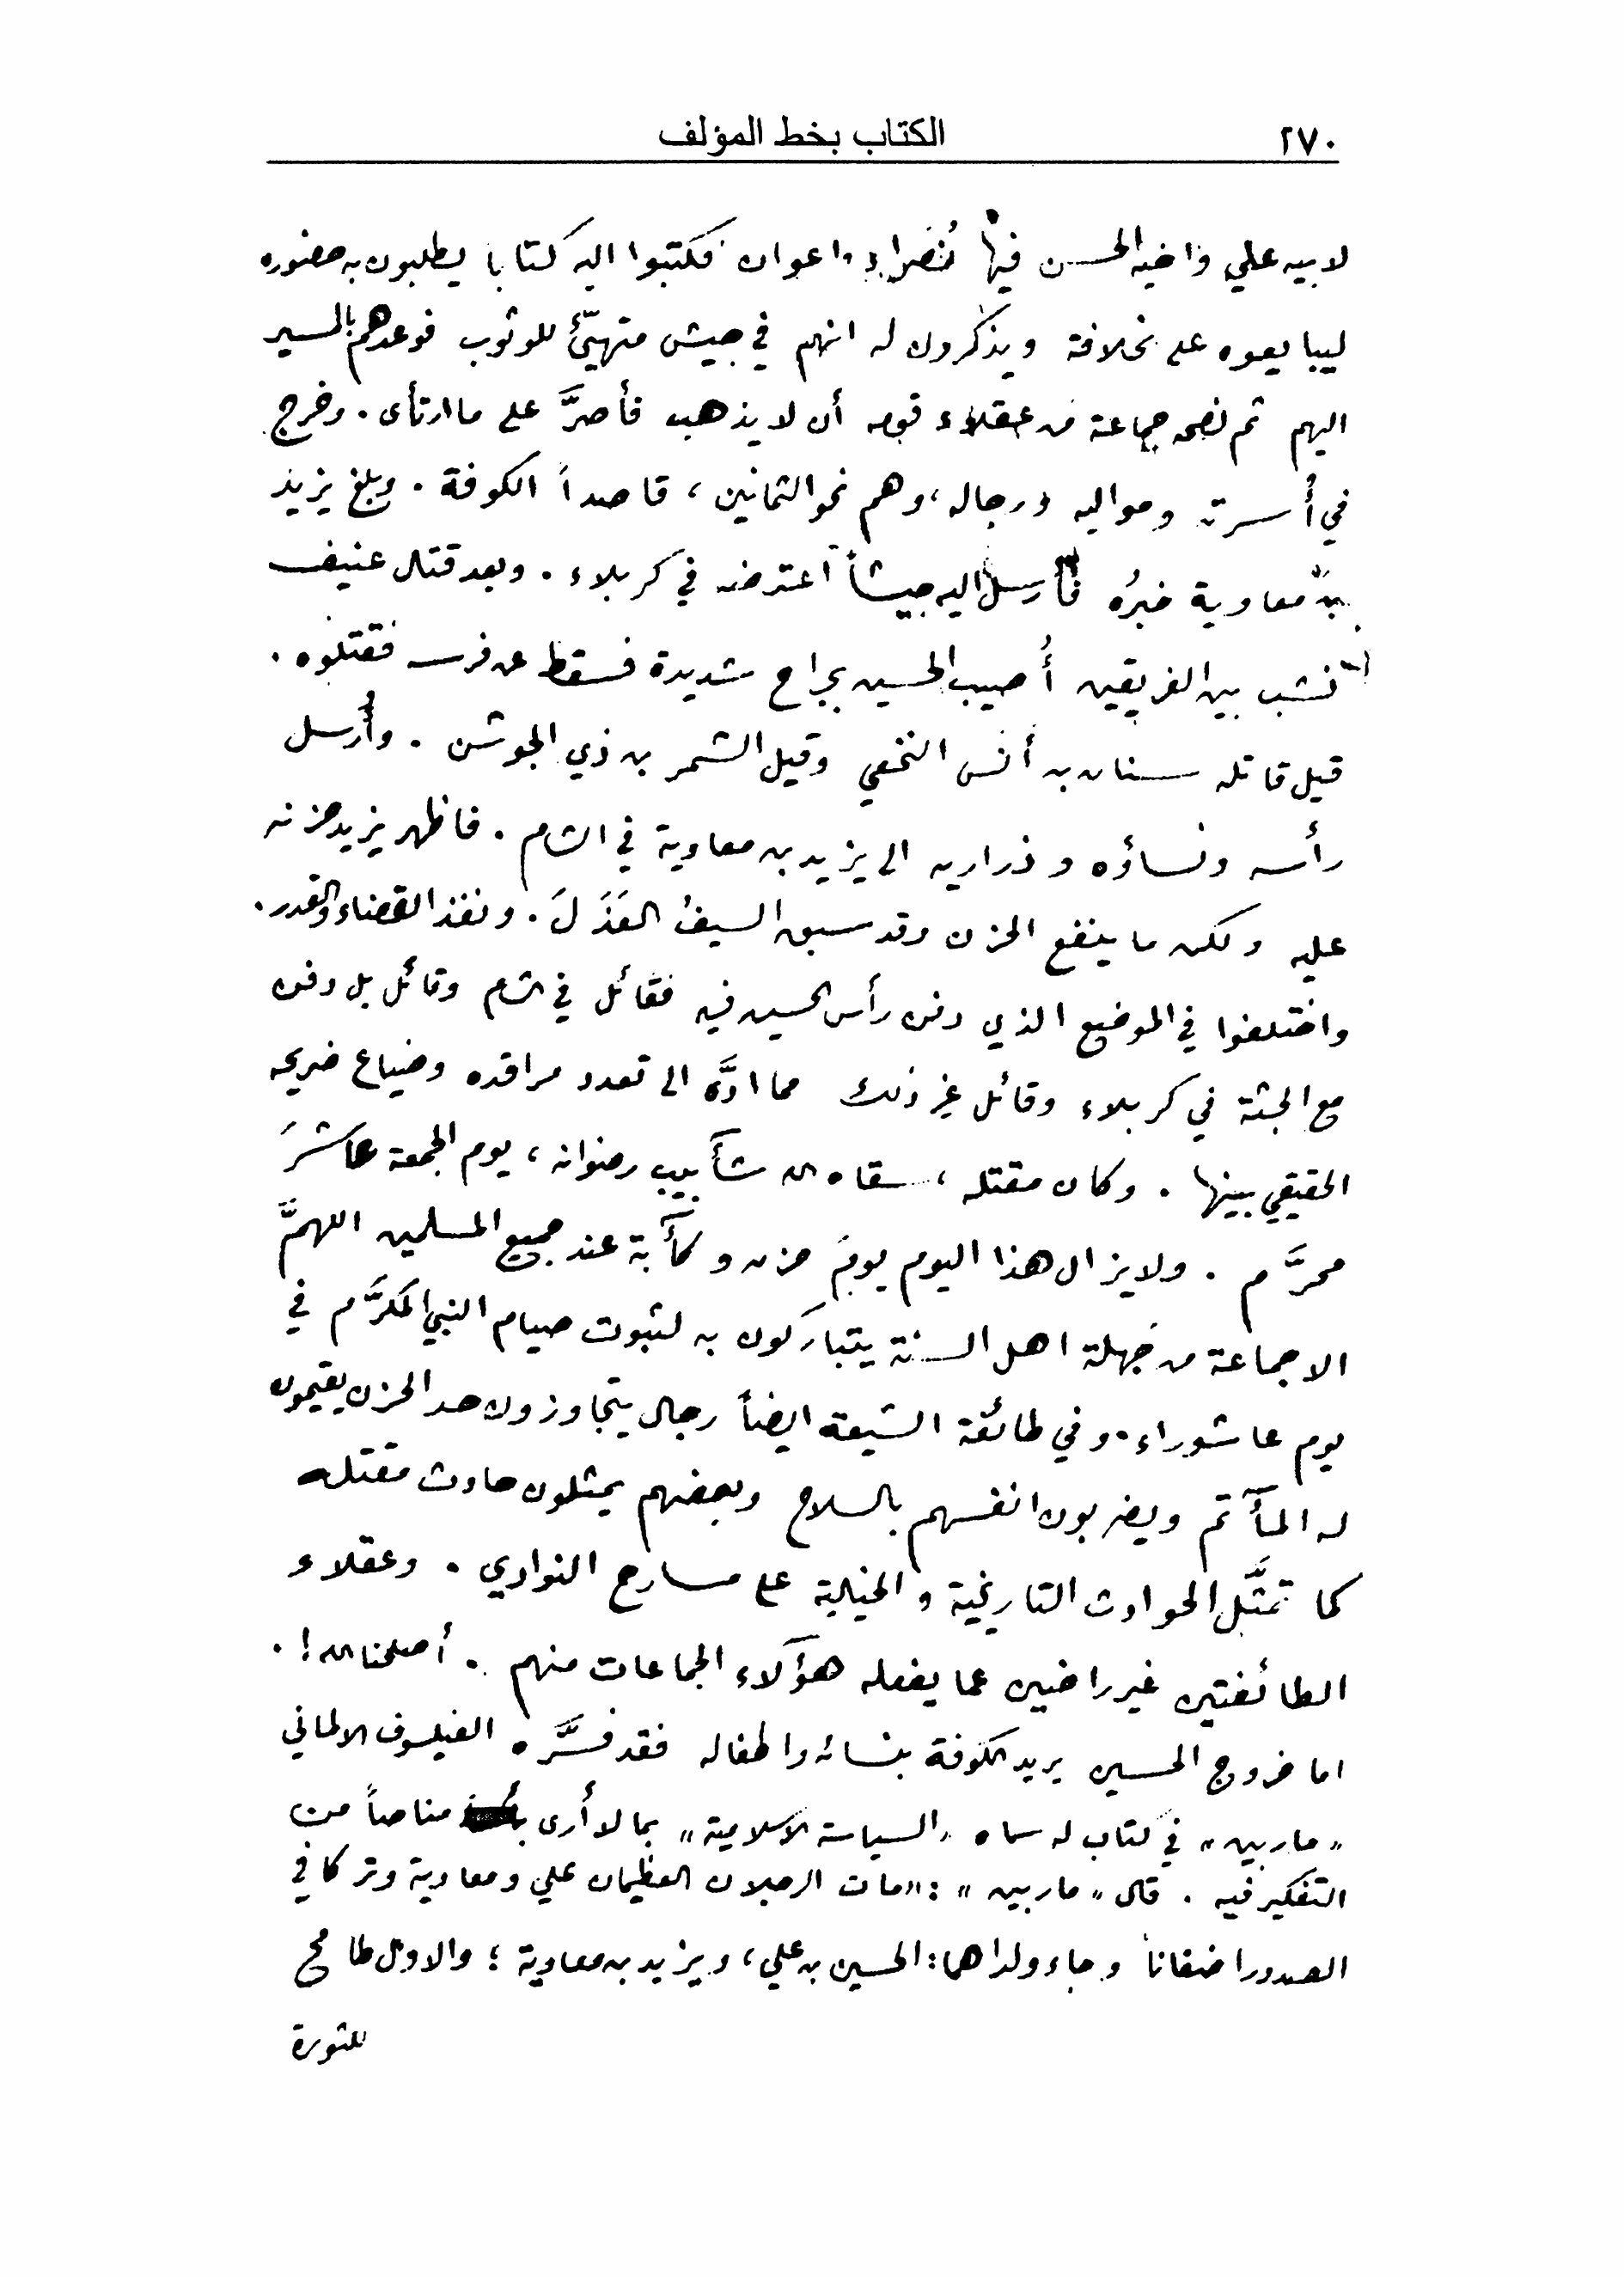 ٢٧٠ الكتاب بخط المؤلف
لابيه علي واخيه الحسن فيها نُصَراء واعوان فكتبوا اليه كتابا يطلبون به حضوره
ليبايعوه على خلافة ويذكرون له انهم في جيش متهيّئ للوثوب فوعدهم بالمسير
اليهم ثم نصحه جماعة من عقلاء قومه أن لا يذهب فأصرَّ على ما ارتأى. وخرج
في أُسرته ومواليه ورجاله، وهم نحو الثمانين، قاصداً الكوفة. وبلغ يزيد
بن معاوية خبرُه فأرسل اليه جيشاً اعترضه في كربلاء. وبعد قتال عنيف
نشب بين الفريقين أُصيب الحسين بجراح شديدة فسقط عن فرسه فقتلوه.
قيل قاتله سنان بن أنس النخعي وقيل الشمر بن ذي الجوشن. وأُرسل
رأسه ونساؤه وذراريه الى يزيد بن معاوية في الشام. فاظهر يزيد حزنه
عليه ولكن ما ينفع الحزن وقد سبق السيفُ العَذَلَ. ونفذ القضاء والقدر.
واختلفوا في الموضع الذي دفن رأس الحسين فيه فقائل في الشام وقائل بل دفن
مع الجثة في كربلاء وقائل غير ذلك مما ادَّى الى تعدد مراقده وضياع ضريحه
الحقيقي بينها. وكان مقتله، سقاه الله شآبيب رضوانه، يوم الجمعة عاشرَ
محرَّم. ولا يزال هذا اليوم يومَ حزن وكآبة عند جميع المسلمين اللهمَّ
الا جماعة من جَهلة اهل السنة يتباركون به لثبوت صيام النبي المكرَّم في
يوم عاشوراء. وفي طائفة الشيعة ايضاً رجال يتجاوزون حد الحزن يقيمون
له المآتم ويضربون انفسهم بالسلاح وبعضهم يمثلون حادث مقتله
كما تمثَّل الحوادث التاريخية والخيالية على مسارح النوادي. وعقلاء
الطائفتين غير راضين عما يفعله هؤلاء الجماعات منهم. أصلحنا الله!.
اما خروج الحسين يريد الكوفة بنسائه واطفاله فقد فسَّره الفيلسوف الالماني
«ماربين» في كتاب له سماه «السياسة الاسلامية» بما لا أرى مناصاً من
التفكير فيه. قال «ماربين»: «مات الرجلان العظيمان علي ومعاوية وتركا في
الصدور اضغاناً وجاء ولداهما: الحسين بن علي، ويزيد بن معاوية؛ والاول طامح
للثورة